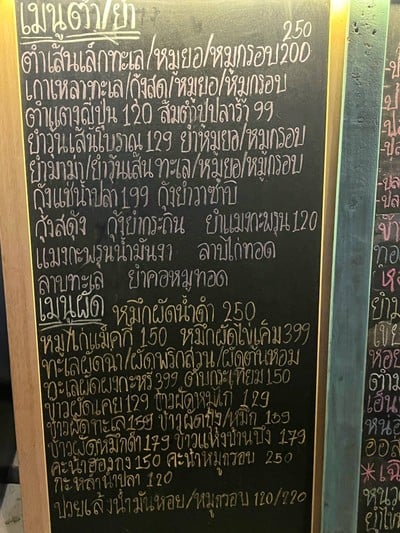 เมนูตำ/ยำ
250
ตำเส้นเล็กทะเล/หมูยอ/หมูกรอบ200
เกาเหลาทะเล/กุ้งสด/หมูยอ/หมูกรอบ
ตำแตงญี่ปุ่น 120 ส้มตำปูปลาร้า 99
ยำวุ้นเส้นโบราณ 129 ยำหมูยอ/หมูกรอบ
ยำมาม่า/ยำวุ้นเส้น ทะเล/หมูยอ/หมูกรอบ
กุ้งแช่น้ำปลา 199 กุ้งยำวาซาบิ
กุ้งสดุ้ง กุ้งยำกระถิน ยำแมงกะพรุน 120
แมงกะพรุนน้ำมันงา ลาบไก่ทอด
ลาบทะเล ยำคอหมูทอด
เมนูผัด หมึกผัดน้ำดำ 250
หมู/ไก่แม็คกี้ 150 หมึกผัดไข่เค็ม 399
ทะเลผัดฉ่า/ผัดพริกสด/ผัดต้นหอม
ทะเลผัดผงกะหรี่ 399 ตับกระเทียม 150
ข้าวผัดเคย 129 ข้าวผัดหมู/ไก่ 129
ข้าวผัดทะเล 159 ข้าวผัดกุ้ง/หมึก 159
ข้าวผัดหมึกดำ 179 ข้าวแห้งบ้านบึง 179
คะน้าฮ่องกง 150 คะน้าหมูกรอบ 250
กะหล่ำน้ำปลา 120
บวยเล้งน้ำมันหอย/หมูกรอบ 120/220